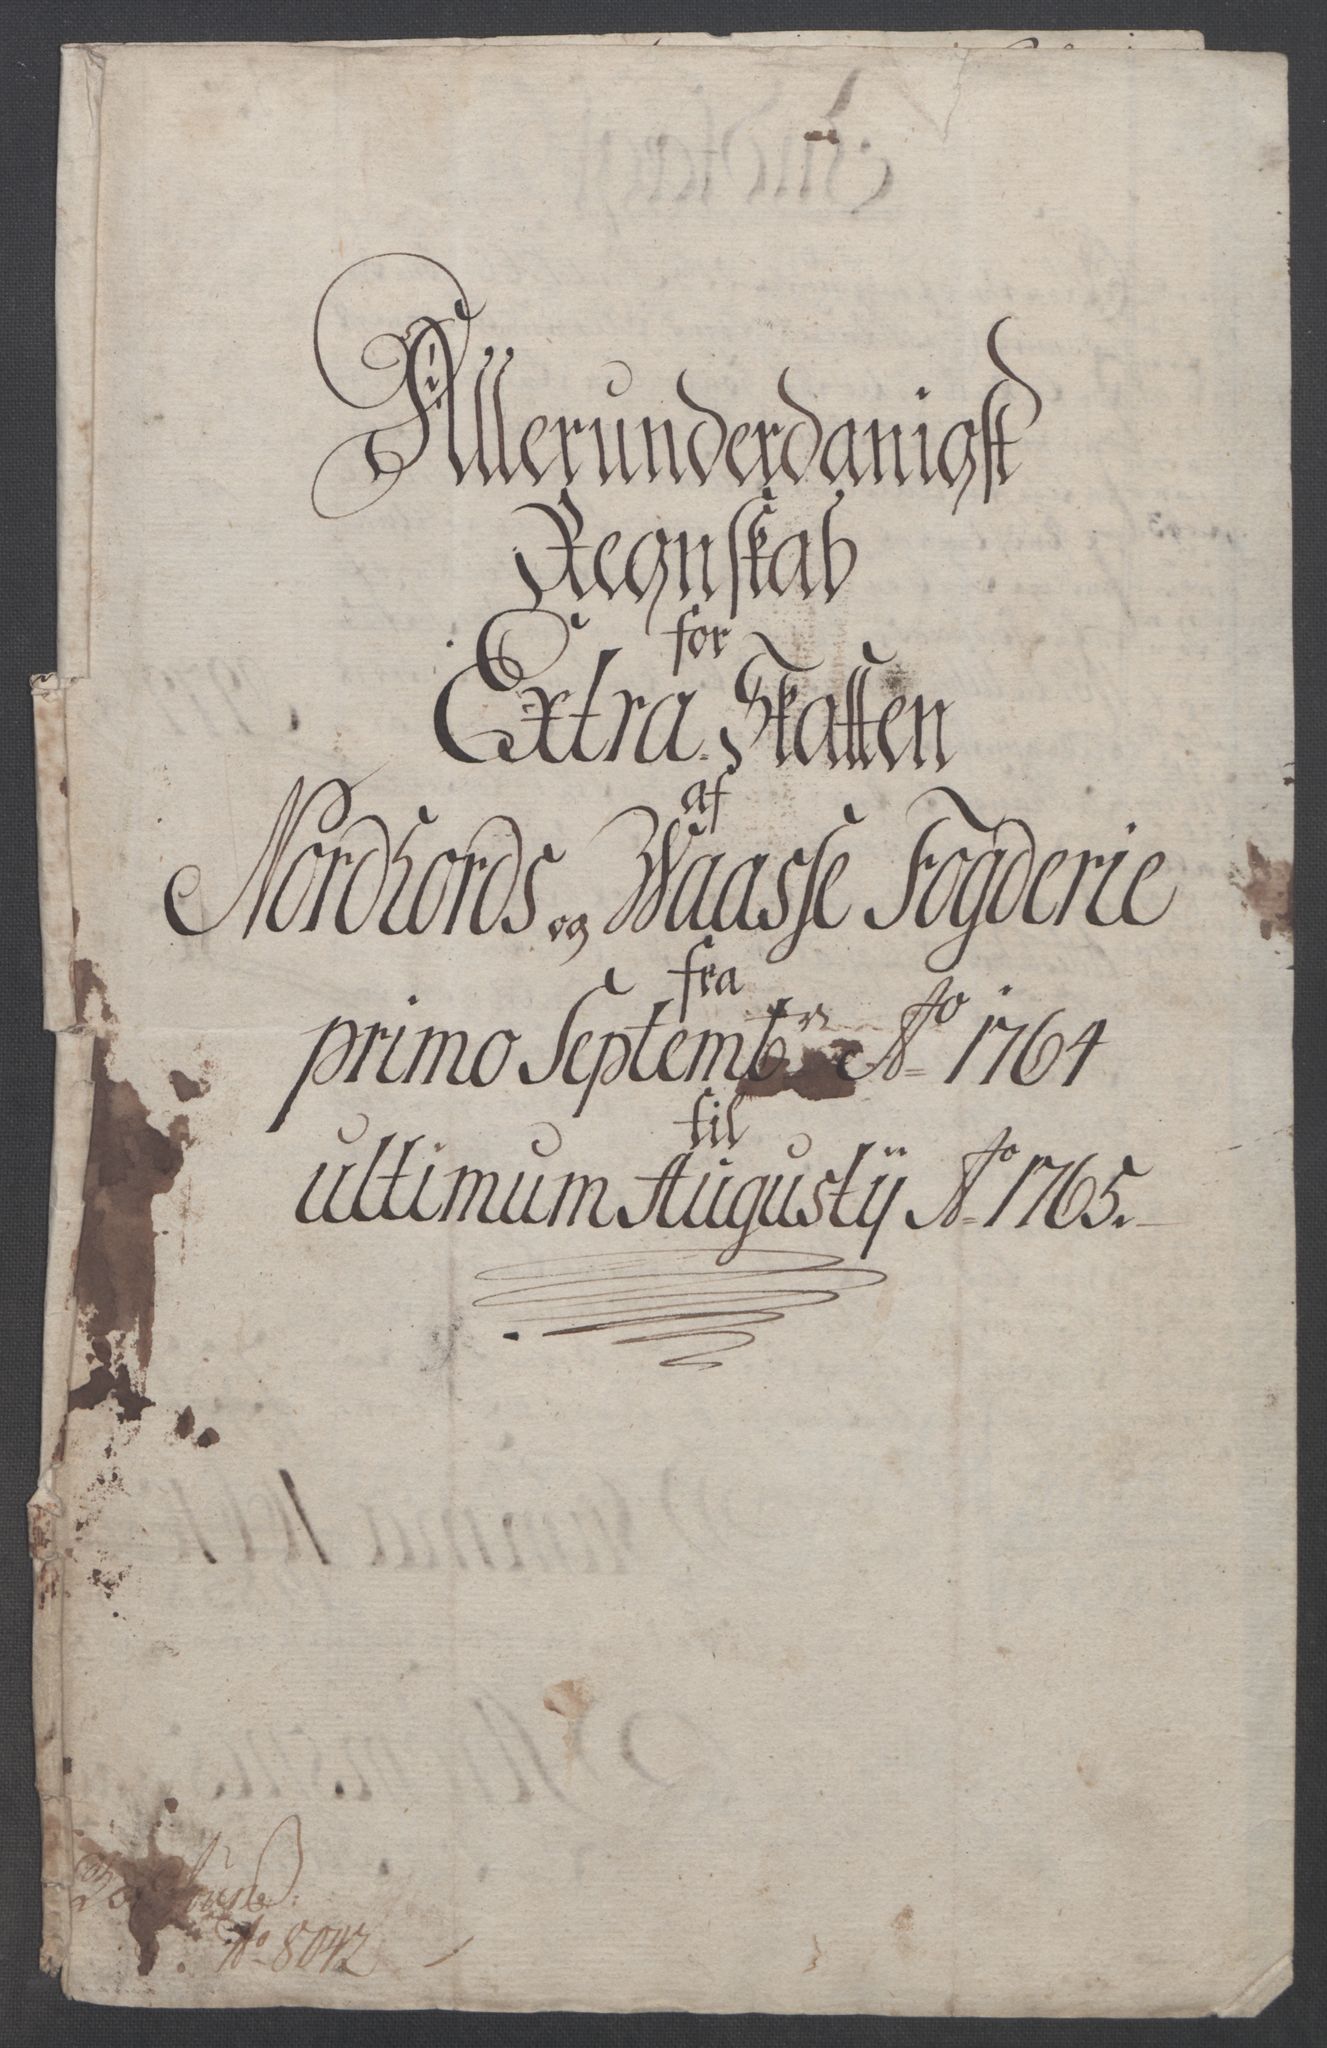 Allerunderdanigst
Regnskab
for
Extra Skatten
af
Nordhords og Waasse Fogderie
fra
primo Septembr Ao 1764
til
ultimum Augustij Ao 1765.
No 8042